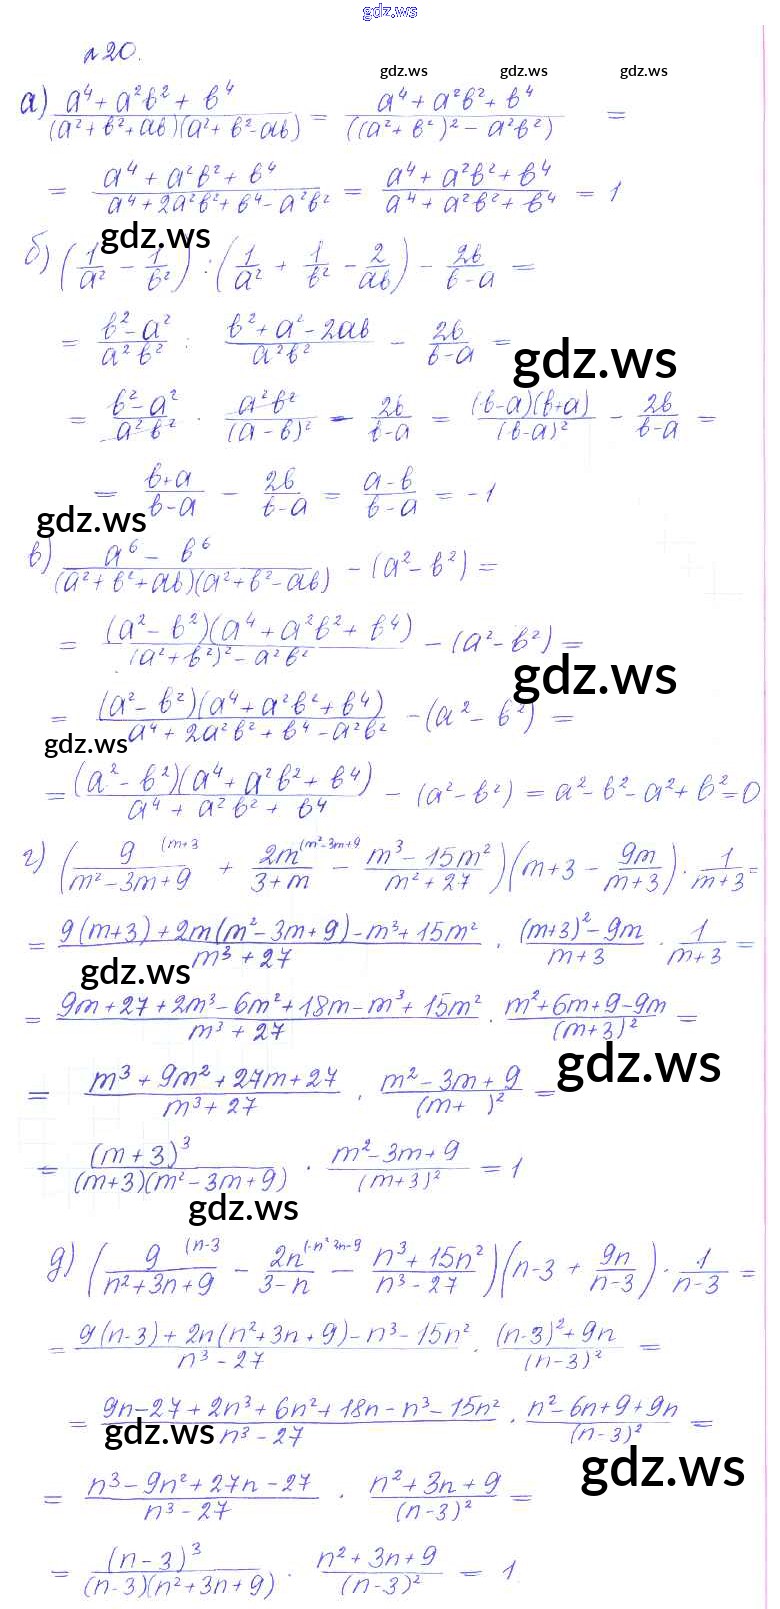 gdz.ws
№20.
gdz.ws gdz.ws gdz.ws
а) (a⁴ + a²b² + b⁴)/((a² + b² + ab)(a² + b² - ab)) = (a⁴ + a²b² + b⁴)/((a² + b²)² - a²b²) =
= (a⁴ + a²b² + b⁴)/(a⁴ + 2a²b² + b⁴ - a²b²) = (a⁴ + a²b² + b⁴)/(a⁴ + a²b² + b⁴) = 1
gdz.ws
б) (1/a² - 1/b²) : (1/a² + 1/b² - 2/ab) - 2b/(b-a) =
= (b² - a²)/(a²b²) : (b² + a² - 2ab)/(a²b²) - 2b/(b-a) =
gdz.ws
= (b² - a²)/(a²b²) · (a²b²)/(a-b)² - 2b/(b-a) = ((b-a)(b+a))/(b-a)² - 2b/(b-a) =
= (b+a)/(b-a) - 2b/(b-a) = (a-b)/(b-a) = -1
gdz.ws
в) (a⁶ - b⁶)/((a² + b² + ab)(a² + b² - ab)) - (a² - b²) =
= ((a² - b²)(a⁴ + a²b² + b⁴))/((a² + b²)² - a²b²) - (a² - b²) =
gdz.ws
= ((a² - b²)(a⁴ + a²b² + b⁴))/(a⁴ + 2a²b² + b⁴ - a²b²) - (a² - b²) =
gdz.ws
= ((a² - b²)(a⁴ + a²b² + b⁴))/(a⁴ + a²b² + b⁴) - (a² - b²) = a² - b² - a² + b² = 0
г) (9 (m+3/(m² - 3m + 9) + 2m (m²-3m+9/(3+m) - (m³ - 15m²)/(m² + 27))(m + 3 - 9m/(m+3)) · 1/(m+3) =
= (9(m+3) + 2m(m² - 3m + 9) - m³ + 15m²)/(m³ + 27) · ((m+3)² - 9m)/(m+3) · 1/(m+3) =
gdz.ws
= (9m + 27 + 2m³ - 6m² + 18m - m³ + 15m²)/(m³ + 27) · (m² + 6m + 9 - 9m)/(m+3)² =
gdz.ws
= (m³ + 9m² + 27m + 27)/(m³ + 27) · (m² - 3m + 9)/(m+ )² =
= (m+3)³/((m+3)(m² - 3m + 9)) · (m² - 3m + 9)/(m+3)² = 1
gdz.ws
д) (9 (n-3/(n² + 3n + 9) - 2n (-n² 3n-9/(3-n) - (n³ + 15n²)/(n³ - 27))(n - 3 + 9n/(n-3)) · 1/(n-3) =
= (9(n-3) + 2n(n² + 3n + 9) - n³ - 15n²)/(n³ - 27) · ((n-3)² + 9n)/(n-3)² =
= (9n - 27 + 2n³ + 6n² + 18n - n³ - 15n²)/(n³ - 27) · (n² - 6n + 9 + 9n)/(n-3)² =
gdz.ws
gdz.ws
= (n³ - 9n² + 27n - 27)/(n³ - 27) · (n² + 3n + 9)/(n-3)² =
= (n-3)³/((n-3)(n² + 3n + 9)) · (n² + 3n + 9)/(n-3)² = 1